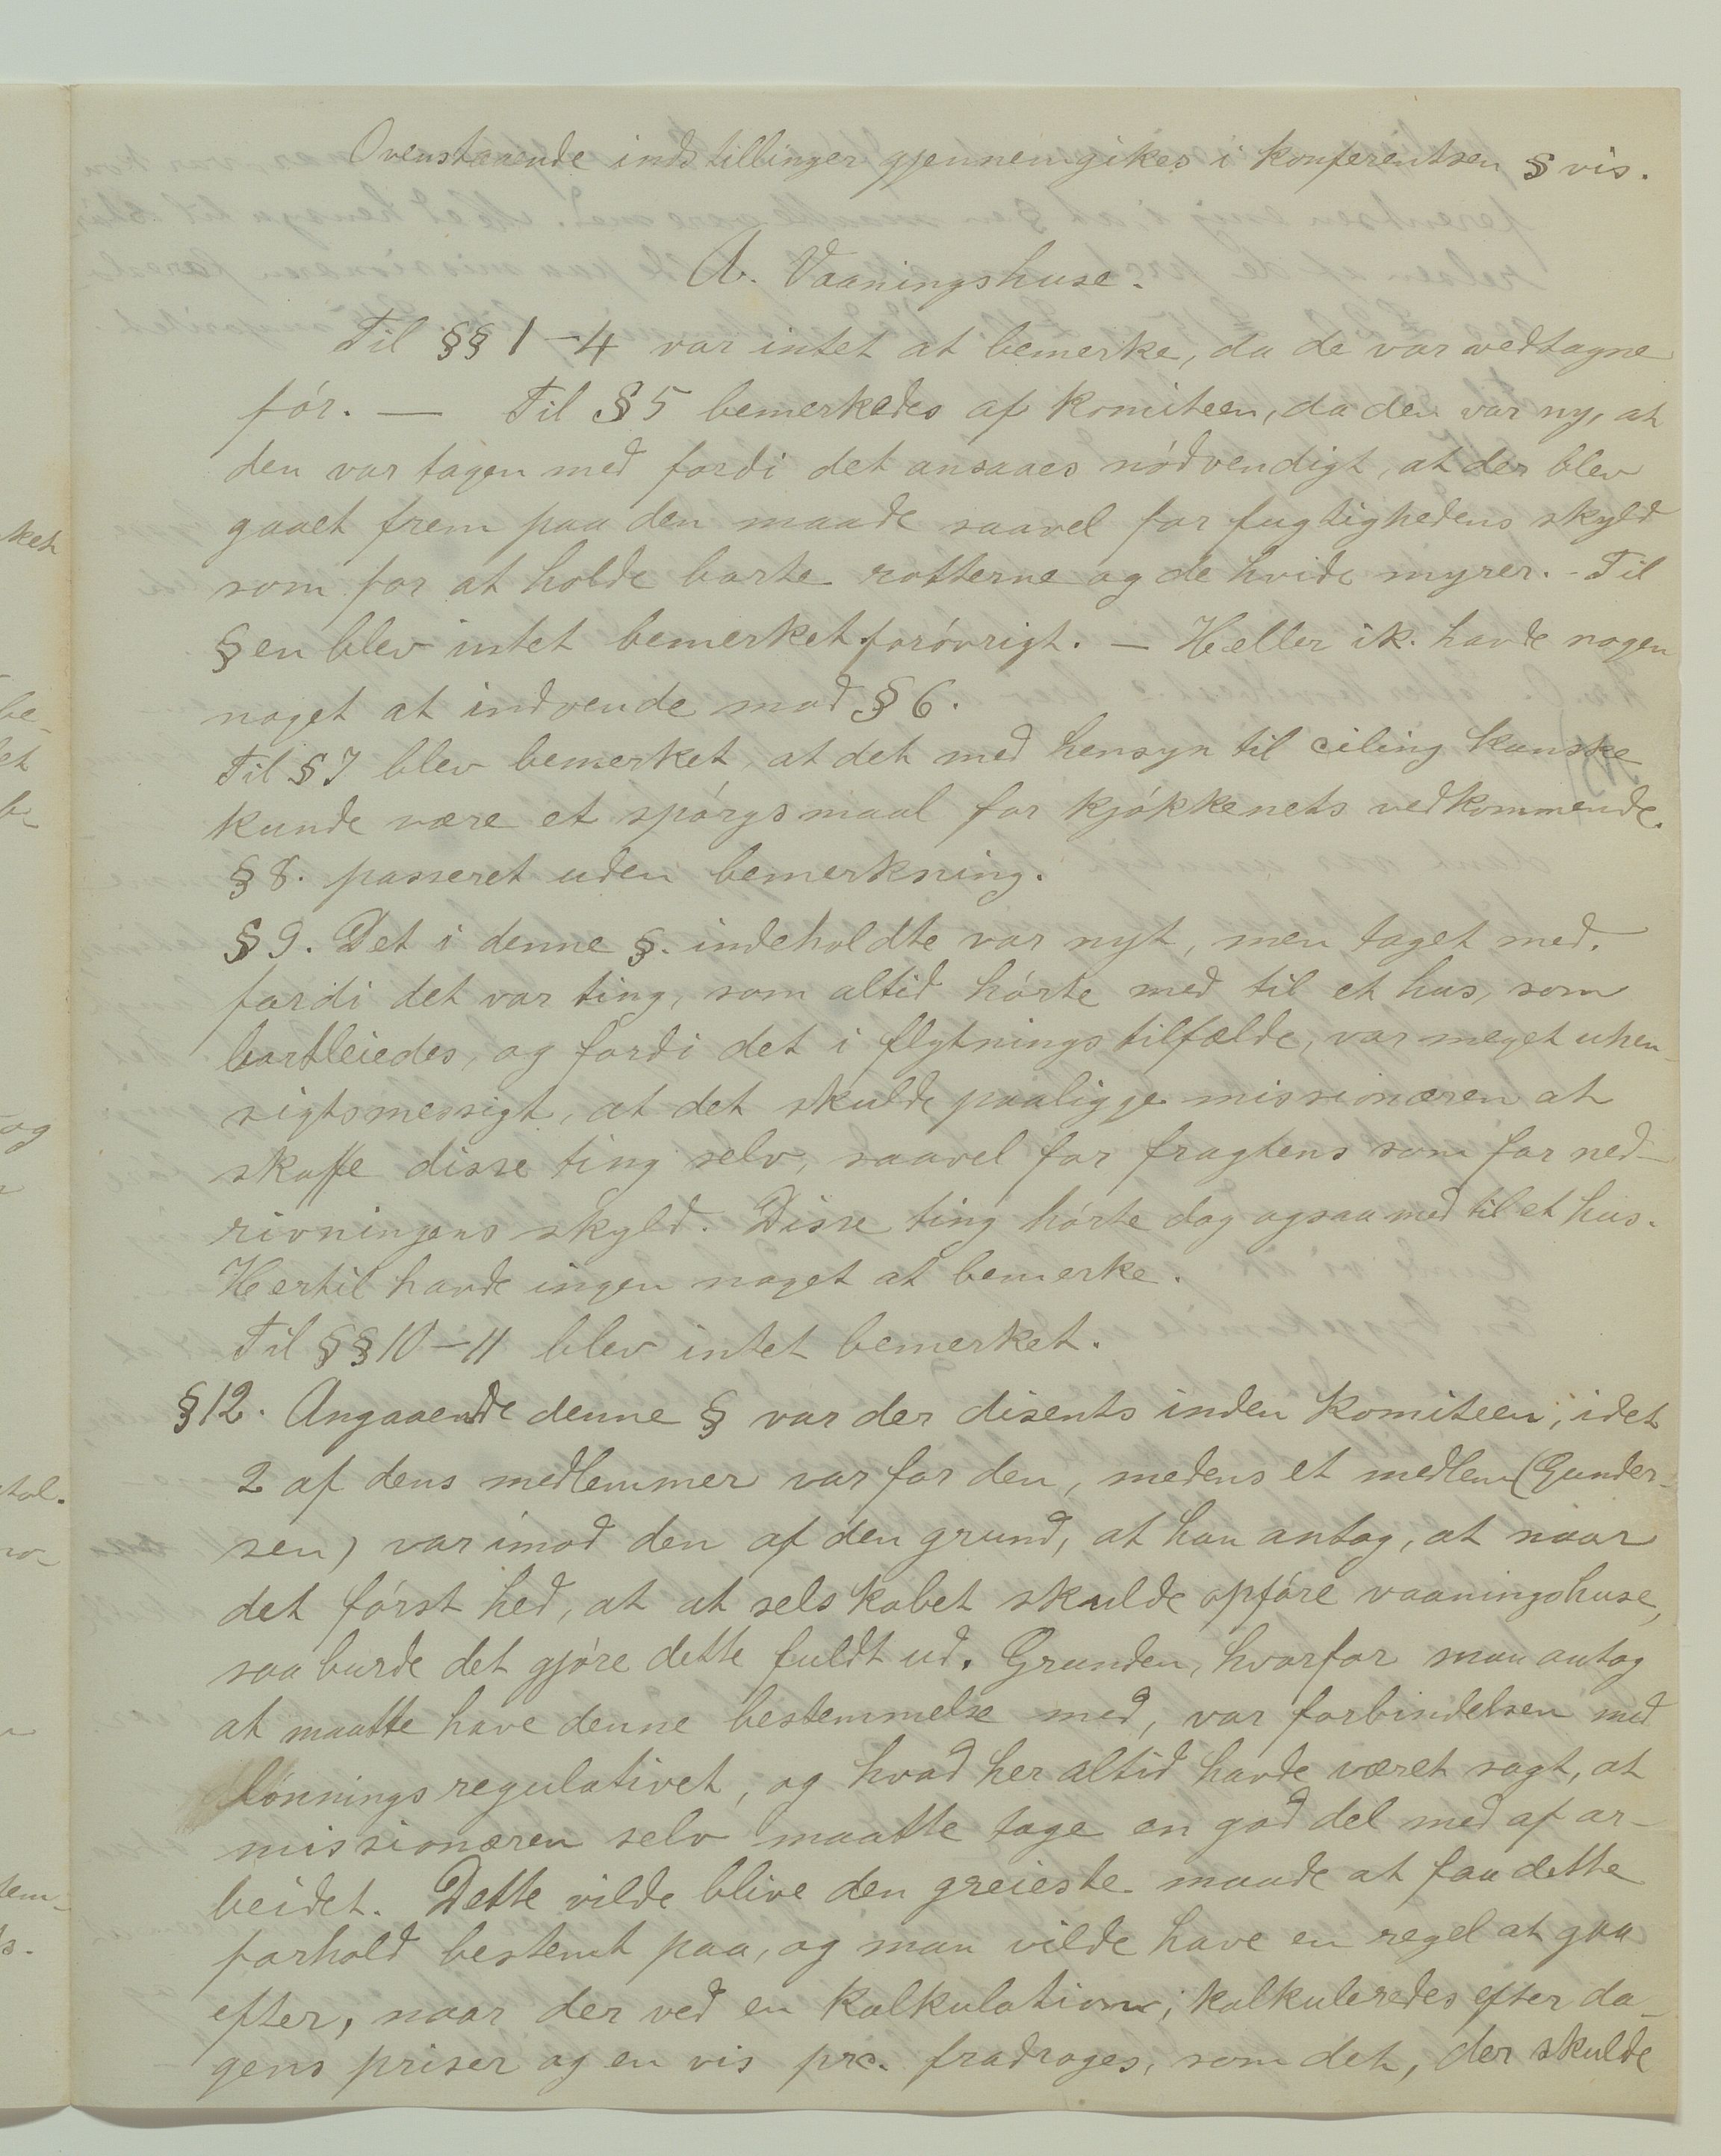 Ovenstaaende indstillinger gjennemgikes i konferentsen § vis.
A. Vaaningshuse.
Til §§ 1-4 var intet at bemerke, da de var vedtagne
før. — Til § 5 bemerkedes af komiteen, da den var ny, at
den var tagen med fordi det ansaaes nødvendigt, at der blev
gaaet frem paa den maade saavel for fugtighedens skyld
som for at holde borte rotterne og de hvide myrer. - Til
§en blev intet bemerket forøvrigt. — Heller ik. havde nogen
noget at indvende mod § 6.
Til § 7 blev bemerket, at det med hensyn til ciling kanske
kunde være et spørgsmaal for kjøkkenets vedkommende.
§ 8. passeret uden bemerkning.
§ 9. Det i denne §. indeholdte var nyt, men taget med.
fordi det var ting, som altid hørte med til et hus, som
bortleiedes, og fordi det i flytningstilfælde, var meget uhen-
sigtsmessigt, at det skulde paaligge missionæren at
skaffe disse ting selv, saavel for fragtens som for ned-
rivningens skyld. Disse ting hørte dog ogsaa med til et hus.
Hertil havde ingen noget at bemerke.
Til §§ 10-11 blev intet bemerket.
§ 12. Angaaende denne § var der disents inden komiteen; idet
2 af dens medlemmer var for den, medens et medlem (Gunder-
sen) var imod den af den grund, at han antog, at naar
det først hed, at at selskabet skulde opføre vaaningshuse,
saa burde det gjøre dette fuldt ud. Grunden, hvorfor man antog
at maatte have denne bestemmelse med, var forbindelsen med
lønningsregulativet, og hvad her altid havde været sagt, at
missionæren selv maatte tage en god del med af ar-
beidet. Dette vilde blive den greieste maade at faa dette
forhold bestemt paa, og man vilde have en regel at gaa
efter, naar der ved en kalkulation; kalkuleredes efter da-
gens priser og en vis prc. fradroges, som det, der skulde